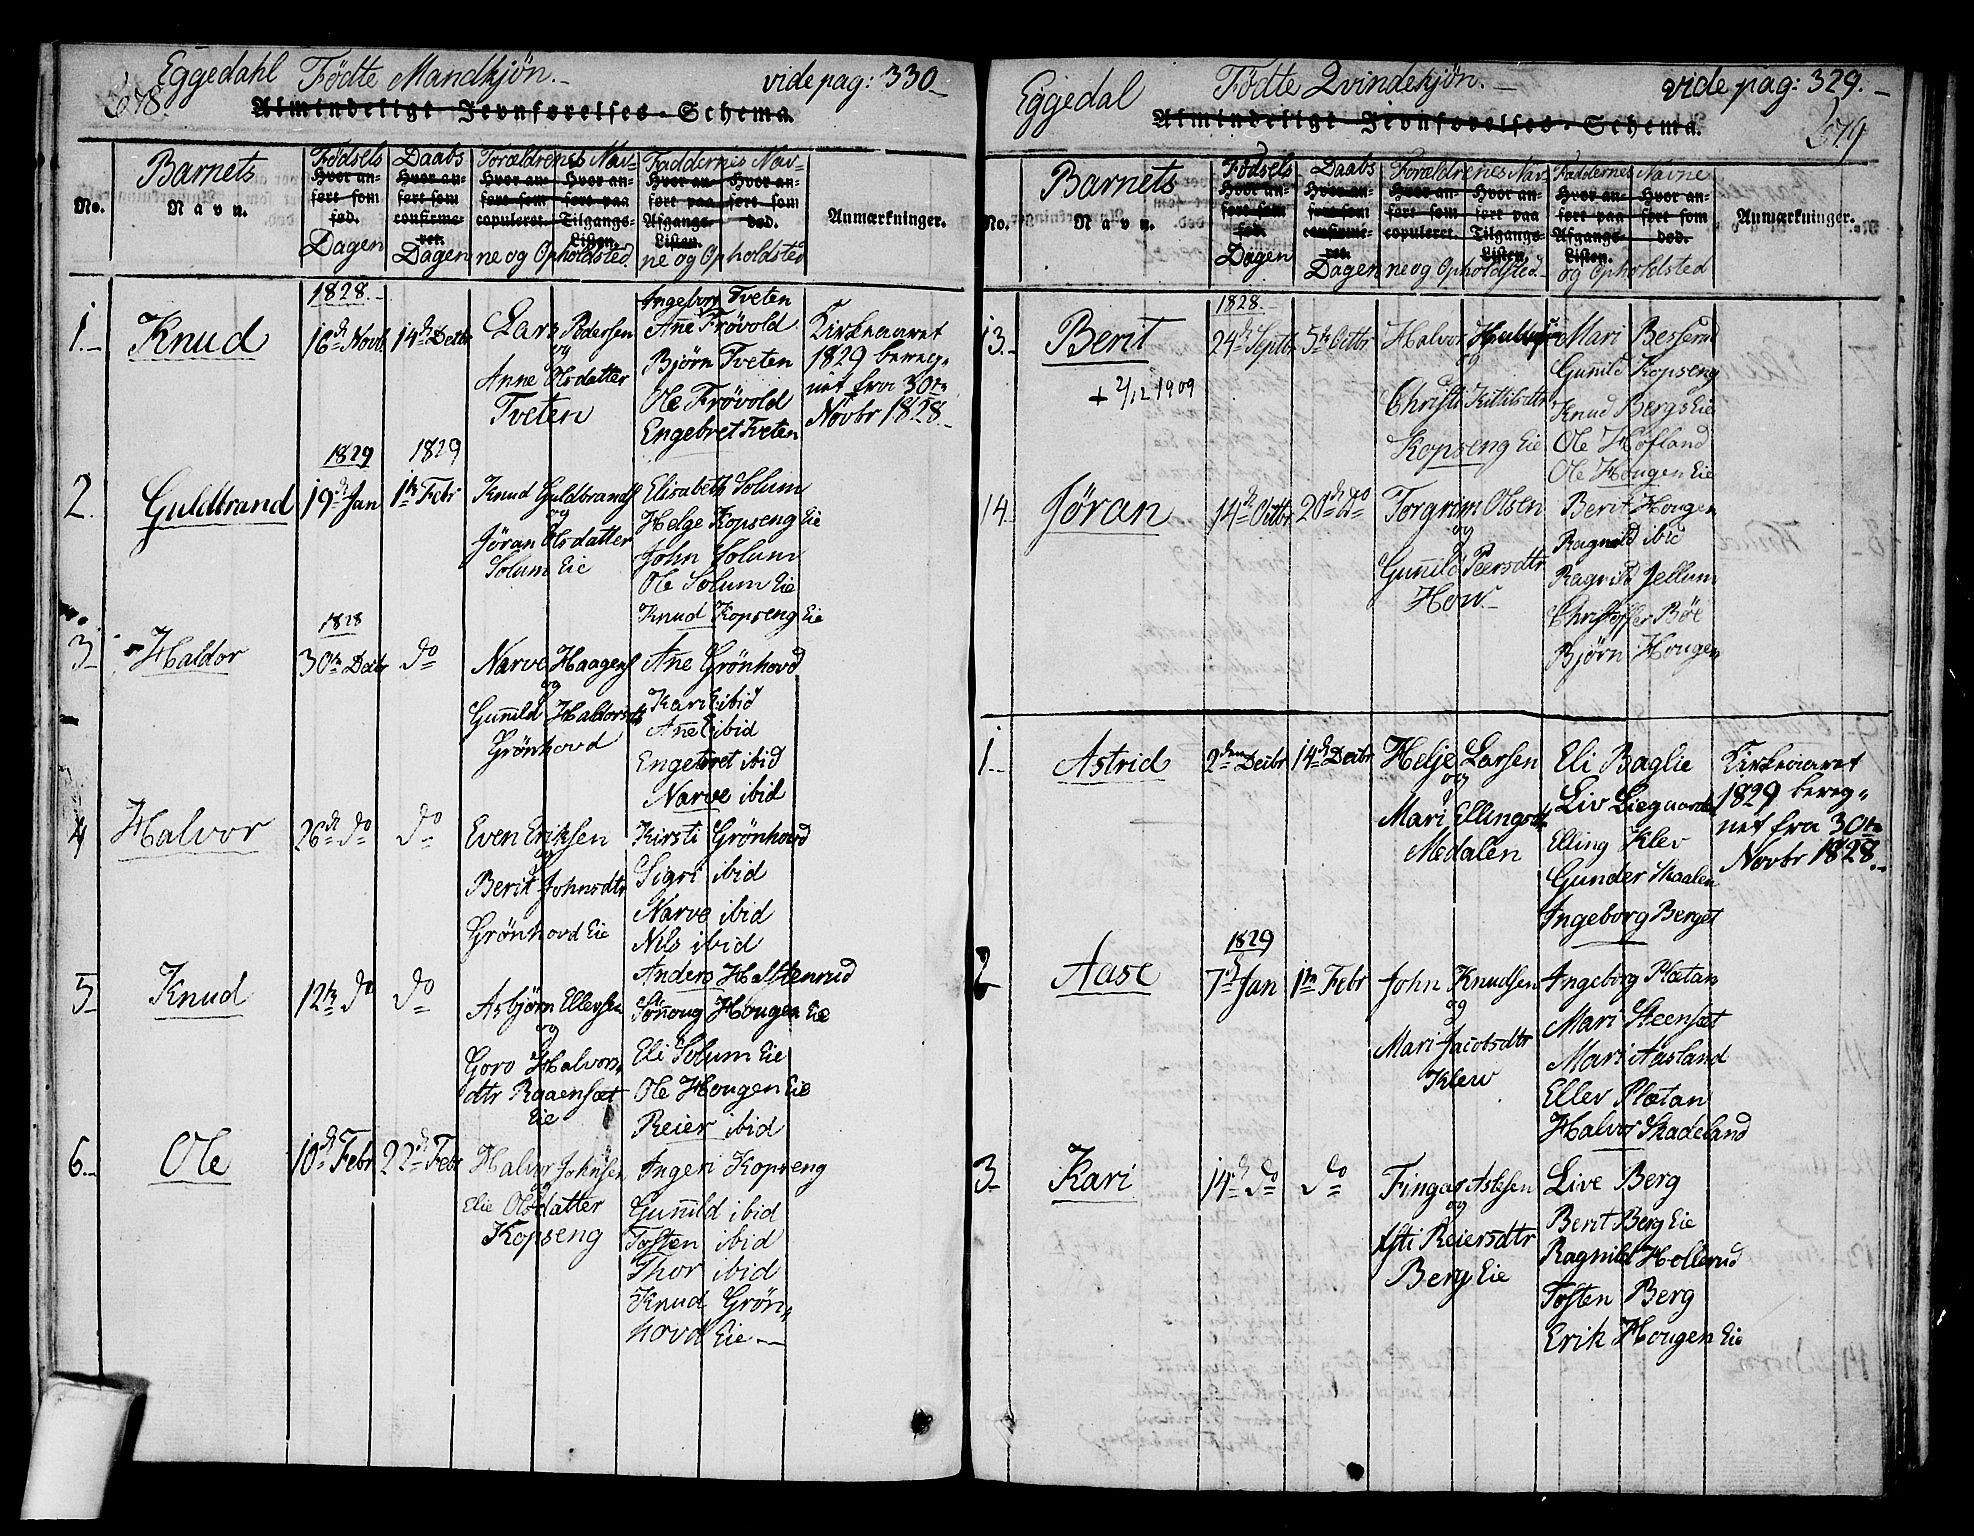 Eggedahl Födte Mandkjön.
vide pag: 330
678.
Almindeligt Jevnførelses-Schema.
No.
Barnets
Navn.
Fødsels
Hvor an-
ført som
fød.
Dagen
Daabs
Hvor an-
ført som
confirme-
ret.
Dagen
Forældrenes Nav-
Hvor an-
ført som
copuleret.
Hvor an-
ført paa
Tilgangs-
Listen.
ne og Opholdsted
Faddernes Nav-
Hvor an-
ført paa
Afgangs-
Listen.
Hvor an-
ført som
død.
ne og Opholdsted
Anmærkninger.
1828.
1.
Knud
16de Novb.
14de Decbr
Lars Pedersen
og
Anne Olsdatter
Tveten
Ingeborg Tveten
Ane Frövold
Björn Tveten
Ole Frövold
Engebret Tveten
Kirkeaaret
1829 bereg-
net fra 30te
Novbr 1828.
1829
1829
2.
Guldbrand
19de Jan
1te Febr
Knud Guldbrands
og
Jöran Olsdatter
Solum Eie
Elisabeth Solum
Helge Kopseng Eie
John Solum
Ole Solum Eie
Knud Kopseng Eie
1828
3
Haldor
30te Decbr
do
Narve Haagens
og
Gunild Haldorsd
Grönhovd
Ane Grönhovd
Kari ibid
Ane ibid
Engebret ibid
Narve ibid
4
Halvor
26de do
do
Even Eriksen
og
Berit Johnsdtr
Grönhovd Eie
Kirsti Grönhovd
Sigri ibid
Narve ibid
Nils ibid
Anders Halstenrud
5
Knud
12te do
do
Asbjörn Ellevsen
og
Goro Halvors-
dtr Raaensæt
Eie
Sönoug Hougen Eie
Eli Solum Eie
Ole Hougen Eie
Reier ibid
6.
Ole
10de Febr
22de Febr
Halvor Johnsen
og
Elie Olsdatter
Kopseng
Ingeri Kopseng
Gunild ibid
Tosten ibid
Thor ibid
Knud Grön-
hovd Eie
Eggedal
Födte Qvindekjön.
vide pag: 329.
679
Almindeligt Jevnførelses-Schema.
No.
Barnets
Navn.
Fødsels
Hvor an-
ført som
fød.
Dagen
Daabs
Hvor an-
ført som
confirme-
ret.
Dagen
Forældrenes Nav-
Hvor an-
ført som
copuleret.
Hvor an-
ført paa
Tilgangs-
Listen.
ne og Opholdsted
Faddernes Navne
Hvor an-
ført paa
Afgangs-
Listen.
Hvor an-
ført som
død.
og Opholdsted
Anmærkninger.
1828.
13.
Berit
+ 2/12 1909
24de Septbr
5te Octbr
Halvor
og
Christi Kittilsdtr
Kopseng Eie
Mari
Gunild Kopseng
Knud Bergs Eie
Ole Hofland
Ole Hougen Eie
14.
Jöran
14de Octbr
20de do
Torgrim Olsen
og
Gunild Peersdtr
How
Berit Hougen
Ragnild ibid
Ragnild Jellum
Christoffer Böe
Björn Hougen
1.
Astrid
2den Decbr
14de Decbr
Helje Larsen
og
Mari Ellingsdtr
Medalen
Eli Baglie
Liv Liegaarden
Elling Klev
Gunder Skaalen
Ingeborg Berget
Kirkeaaret
1829 bereg-
net fra 30te
Novbr 1828.
1829
2
Aase
7de Jan
1te Febr
John Knudsen
og
Mari Jacobsdtr
Klew
Ingeborg Plætan
Mari Steensæt
Mari Aasland
Ellev Plætan
Halvor Skadeland
3
Kari
14de do
do
Fingar Aslesen
og
Asti Reiersdtr
Berg Eie
Live Berg
Berit Berg Eie
Ragnild Hollerud
Tosten Berg
Erik Hougen Eie